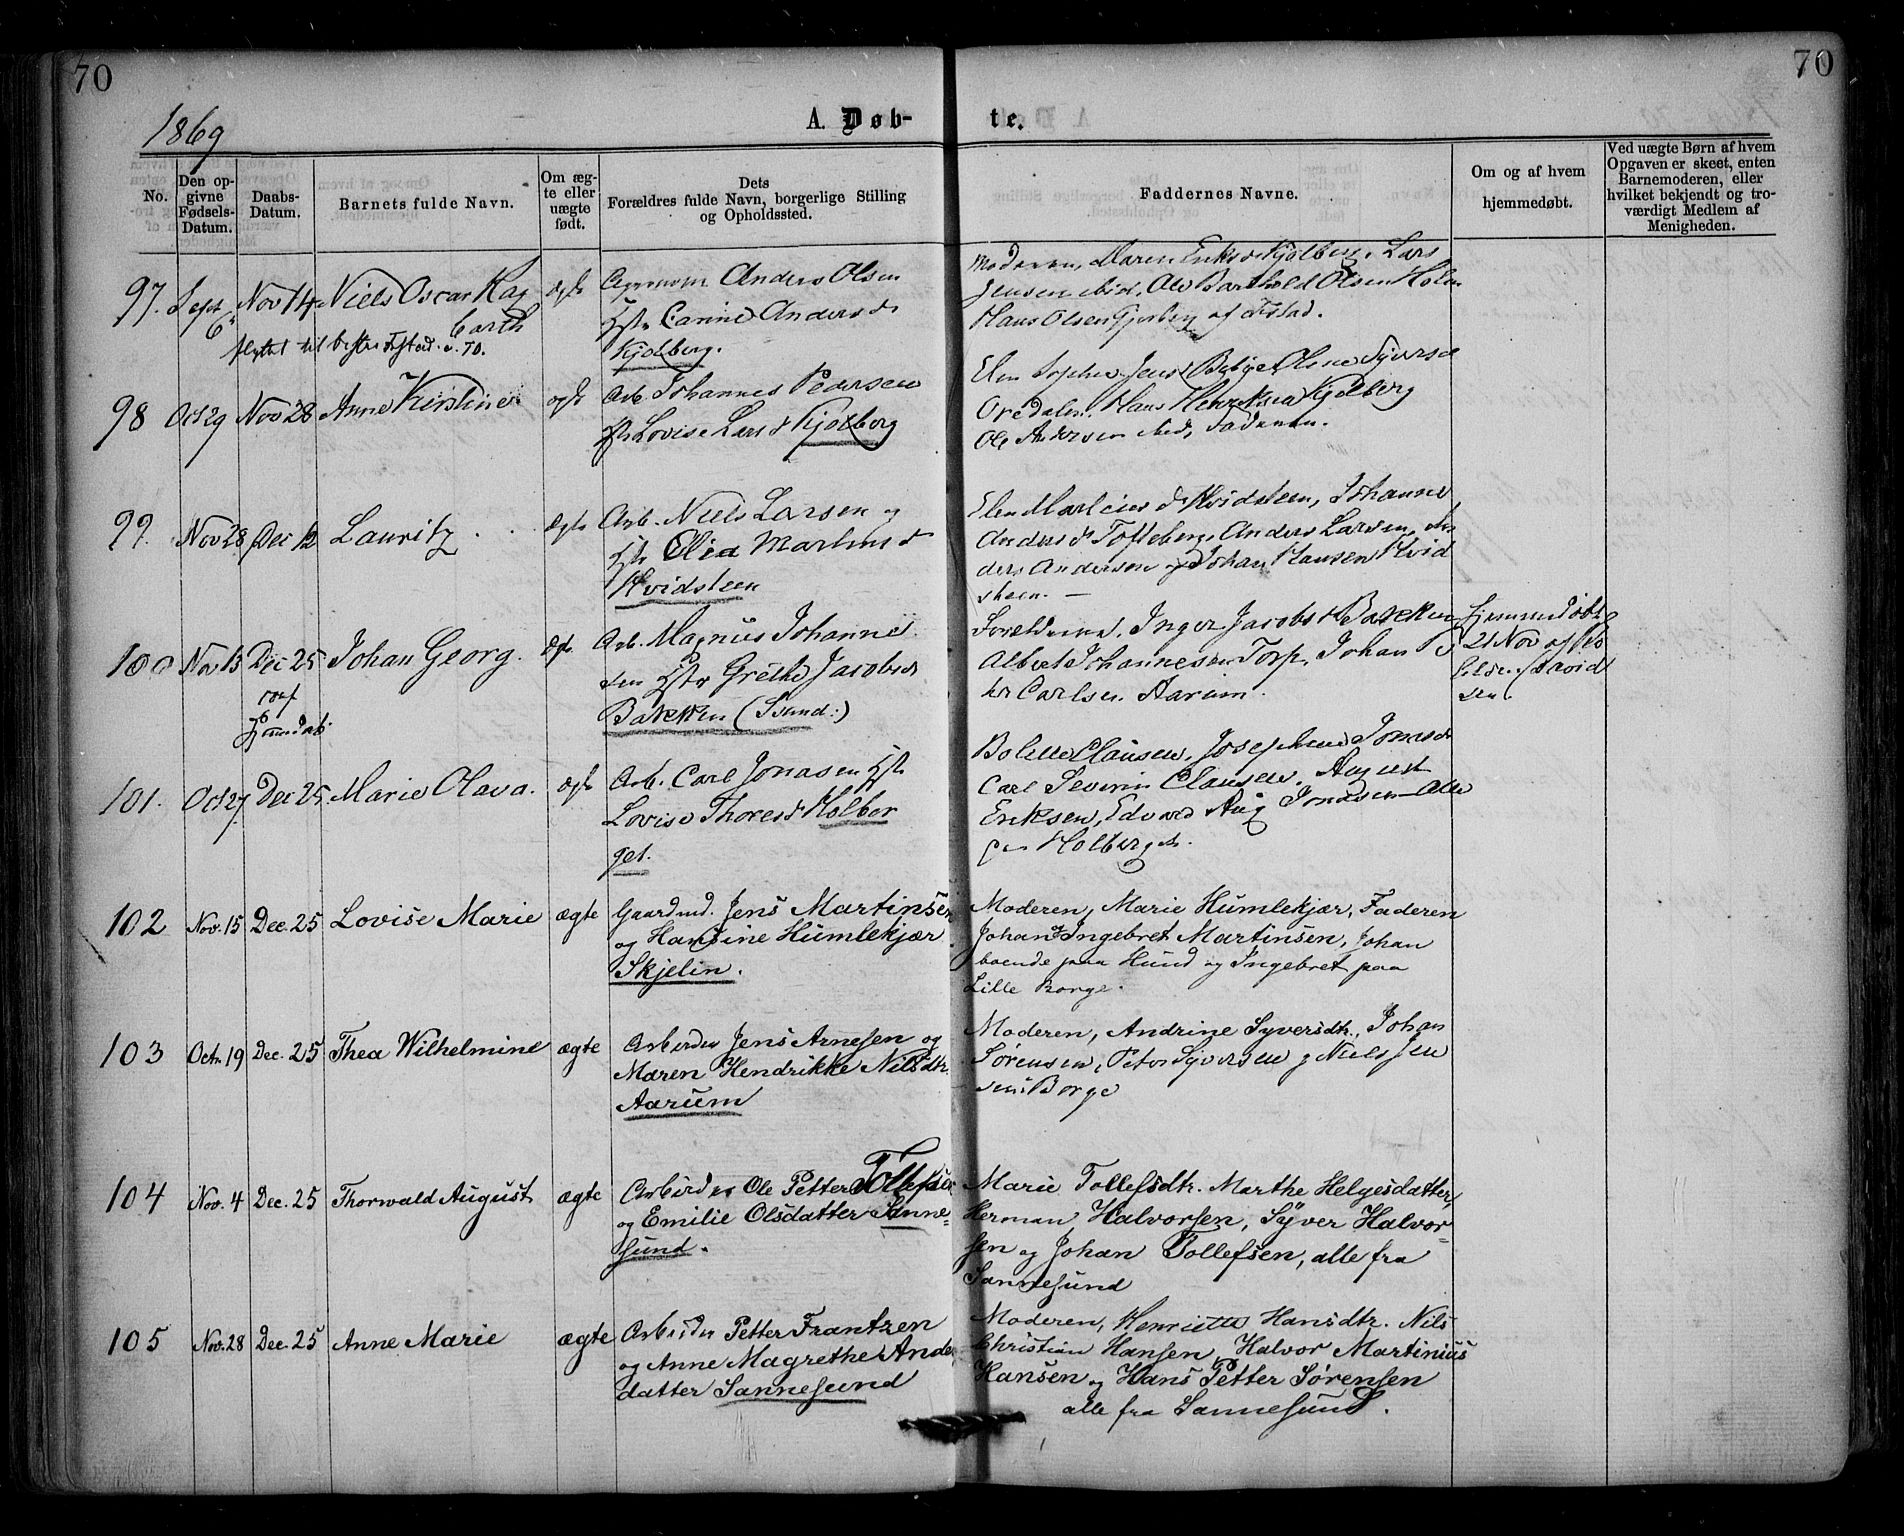 70
70
1869
A. Døb-
te.
No.
Den op-
givne
Fødsels-
Datum.
Daabs-
Datum.
Barnets fulde Navn.
Om æg-
te eller
uægte
født.
Dets
Forældres fulde Navn, borgerlige Stilling
og Opholdssted.
Faddernes Navne.
Om og af hvem
hjemmedøbt.
Ved uægte Børn af hvem
Opgaven er skeet, enten
Barnemoderen, eller
hvilket bekjendt og tro-
værdigt Medlem af
Menigheden.
97. Sept 6 Nov 14 Niels Oscar Kag
Carth
ægte Anders Olsen
Hstr Carine Andersd
Kjølberg.
Moderen, Maren Eriksd Kjølberg, Lars
Jensen ibid, Ole Barthold Olsen Holm
Hans Olsen Gjerberg af Tistad.
98 Oct 29 Nov 28 Anne Kirstine
ægte Arb. Johannes Pedersen
Hstr Lovise Larsd Kjølberg
Oredalen. Hans Henriksen Kjølberg
Ole Andersen ibid, Faderen.
99. Nov 28 Dec 12 Lauritz
ægte Arb. Niels Larsen og
Hstr Olea Martinsd
Hvidsteen
Elen Mathiesd Hvidsteen, Johanne
Andersd Tofteberg, Anders Larsen, An
ders Andersen og Johan Hansen Hvid
steen. —
100 Nov 15 Dec 25 Johan Georg.
ægte Arb. Magnus Johanne
sen Hstr Grethe Jacobsd
Bakken (Sund:)
Forældrene, Inger Jacobsd Bakken
Albert Johannesen Torp, Johan Pe
ter Carlsen Aarum.
hjemmedøbt
21 Nov af
David
sen.
101. Oct 27 Dec 25 Marie Olava.
ægte Arb. Carl Jonasen Hstr
Lovise Thoresd Holber
get.
Bolette Clausen, Josephine Jonasd
Carl Severin Clausen, August
Eriksen, Edvard Aug Jonasen Alle
paa Holberget.
102 Nov. 15 Dec. 25 Lovise Marie
ægte Gaardmd. Jens Martinsen
og Hansine Humlekjær
Skjelin.
Moderen, Marie Humlekjær, Faderen
Johan og Ingebret Martinsen, Johan
boende paa Hund og Ingebret paa
Lille Borge.
103 Octr. 19 Dec. 25 Thea Wilhelmine
ægte Arbeider Jens Arnesen og
Maren Hendrikke Nilsdtr.
Aarum
Moderen, Andrine Syversdtr., Johan
Sørensen, Peter Syversen og Niels Jen
sen Borge
104 Nov. 4 Dec. 25 Thorwald August
ægte Arbeider Ole Petter Tollefsen
og Emilie Olsdatter Sanne-
sund.
Marie Tollefsdtr. Marthe Helgesdatter,
Herman Halvorsen, Syver Halvor-
sen og Johan Tollefsen, alle fra
Sannesund
105 Nov. 28 Dec. 25 Anne Marie
ægte Arbeider Petter Frantzen
og Anne Magrethe Ande
datter Sannesund
Moderen, Henriette Hansdtr. Nils
Christian Hansen, Halvor Martinius
Hansen og Hans Petter Sørensen
alle fra Sannesund.